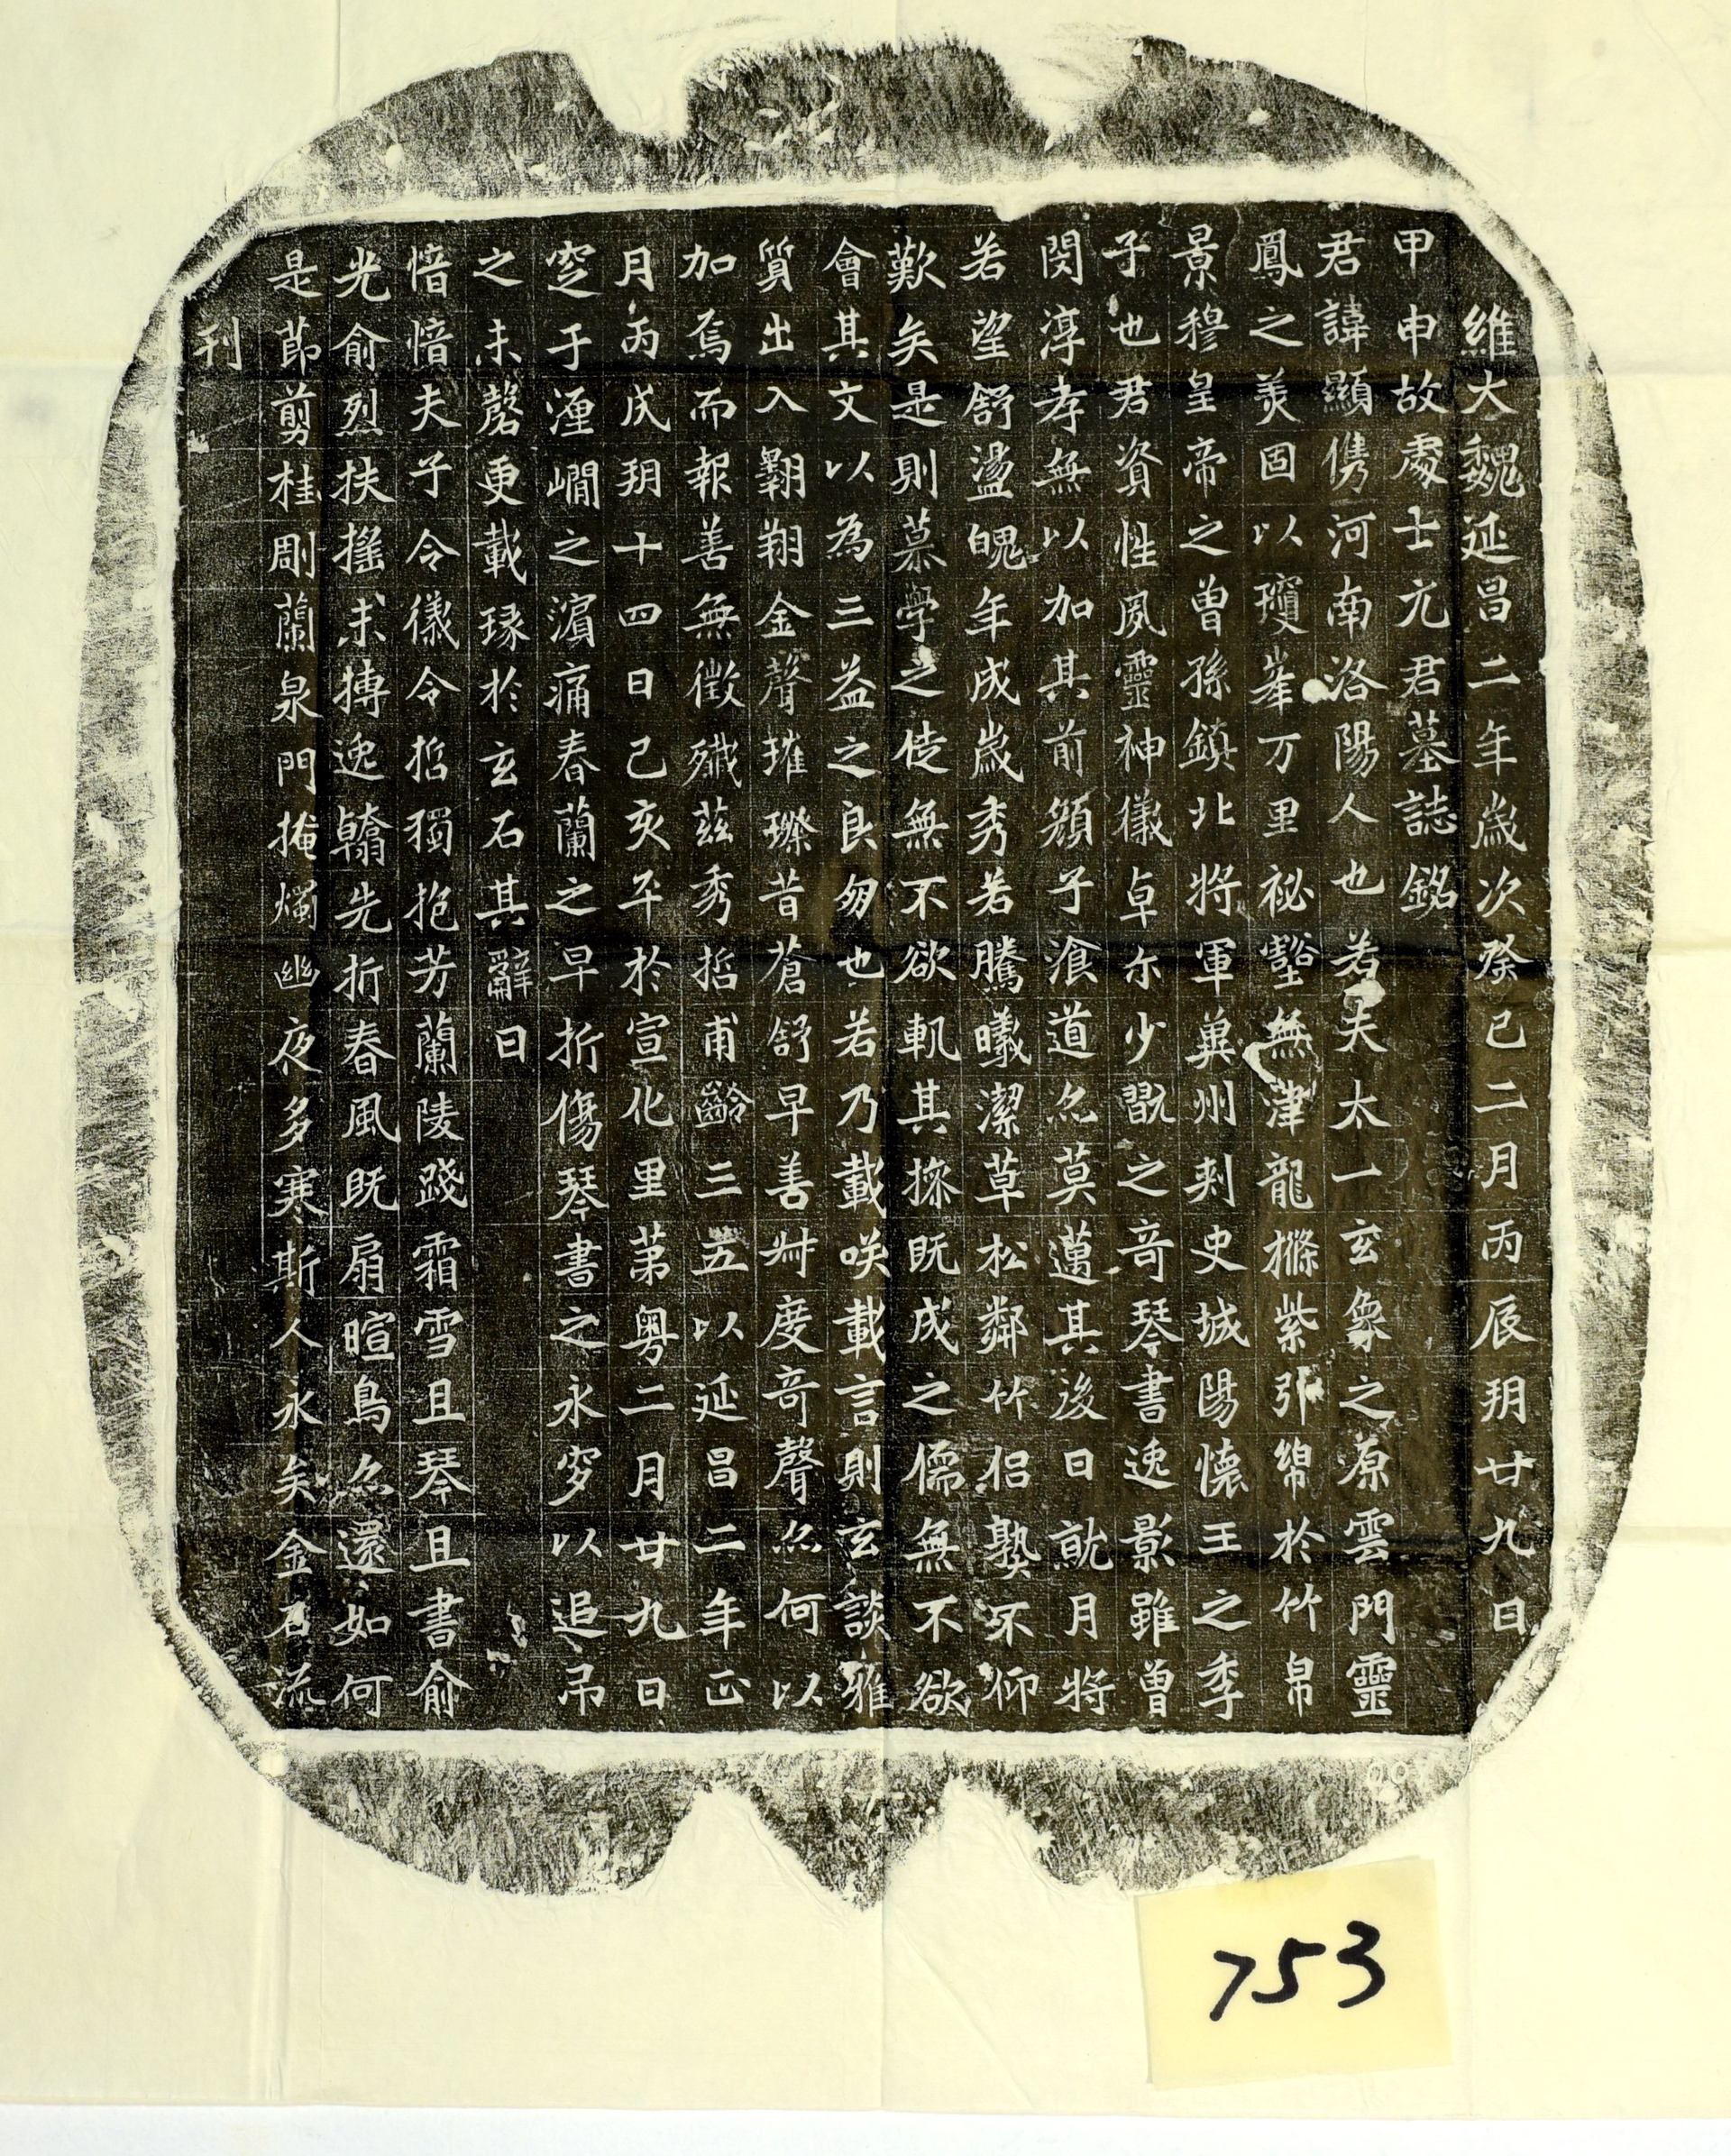 維大魏延昌二年歲次癸巳二月丙辰玥廿九日
甲申故處士元君墓誌銘
君諱顯儁河南洛陽人也若夫太一玄象之原雲門靈
鳳之美固以瓊峯万里祕壑無津龍㩱紫引綿於竹帛
景穆皇帝之曾孫鎮北將軍兾州刾史城陽懷王之季
子也君資性夙靈神儀卓尒少翫之奇琴書逸影雖曾
閔淳孝無以加其前顏子湌道亦莫邁其後日就月將
若望舒盪魄年成歲秀若騰曦潔草松鄰竹侶熟不仰
歎矣是則慕學之徒無不欲軌其操既成之儒無不欲
會其文以為三益之良朋也若乃載咲載言則玄談雅
質出入翱翔金聲璀璨昔蒼舒早善舛度奇聲亦何以
加焉而報善無徵殲茲秀哲甫齡三五以延昌二年正
月丙戌玥十四日己亥卒於宣化里第粵二月廿九日
窆于瀍㵎之濵痛春蘭之早折傷琴書之永穸以追弔
之未罄更載瑑於玄石其辭曰
愔愔夫子令儀令哲獨抱芳蘭陵踐霜雪且琴且書俞
光俞烈扶搖未摶逸翰先折春風既扇暄鳥亦還如何
是莭剪桂剋蘭泉門掩燭幽夜多寒斯人永矣金石流
刊
753